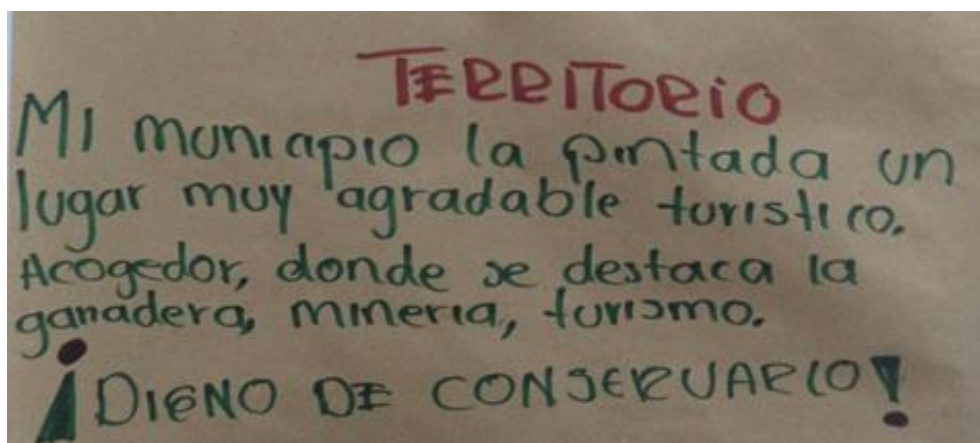 TERRITORIO
MI municipio la pintada un
lugar muy agradable turistico.
Acogedor, donde se destaca la
ganadera, mineria, turismo.
¡DIGNO DE CONSERVARLO!